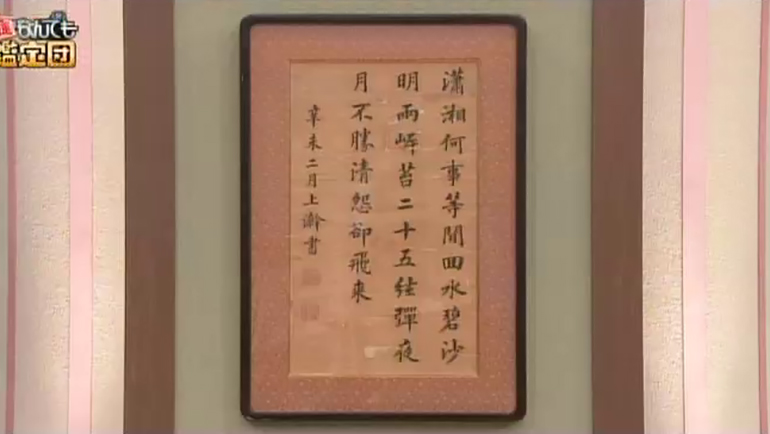 なんでも
鑑定団
瀟湘何事等閒回水碧沙
明雨岸苔二十五絃彈夜
月不勝清怨卻飛來
辛未二月上澣書